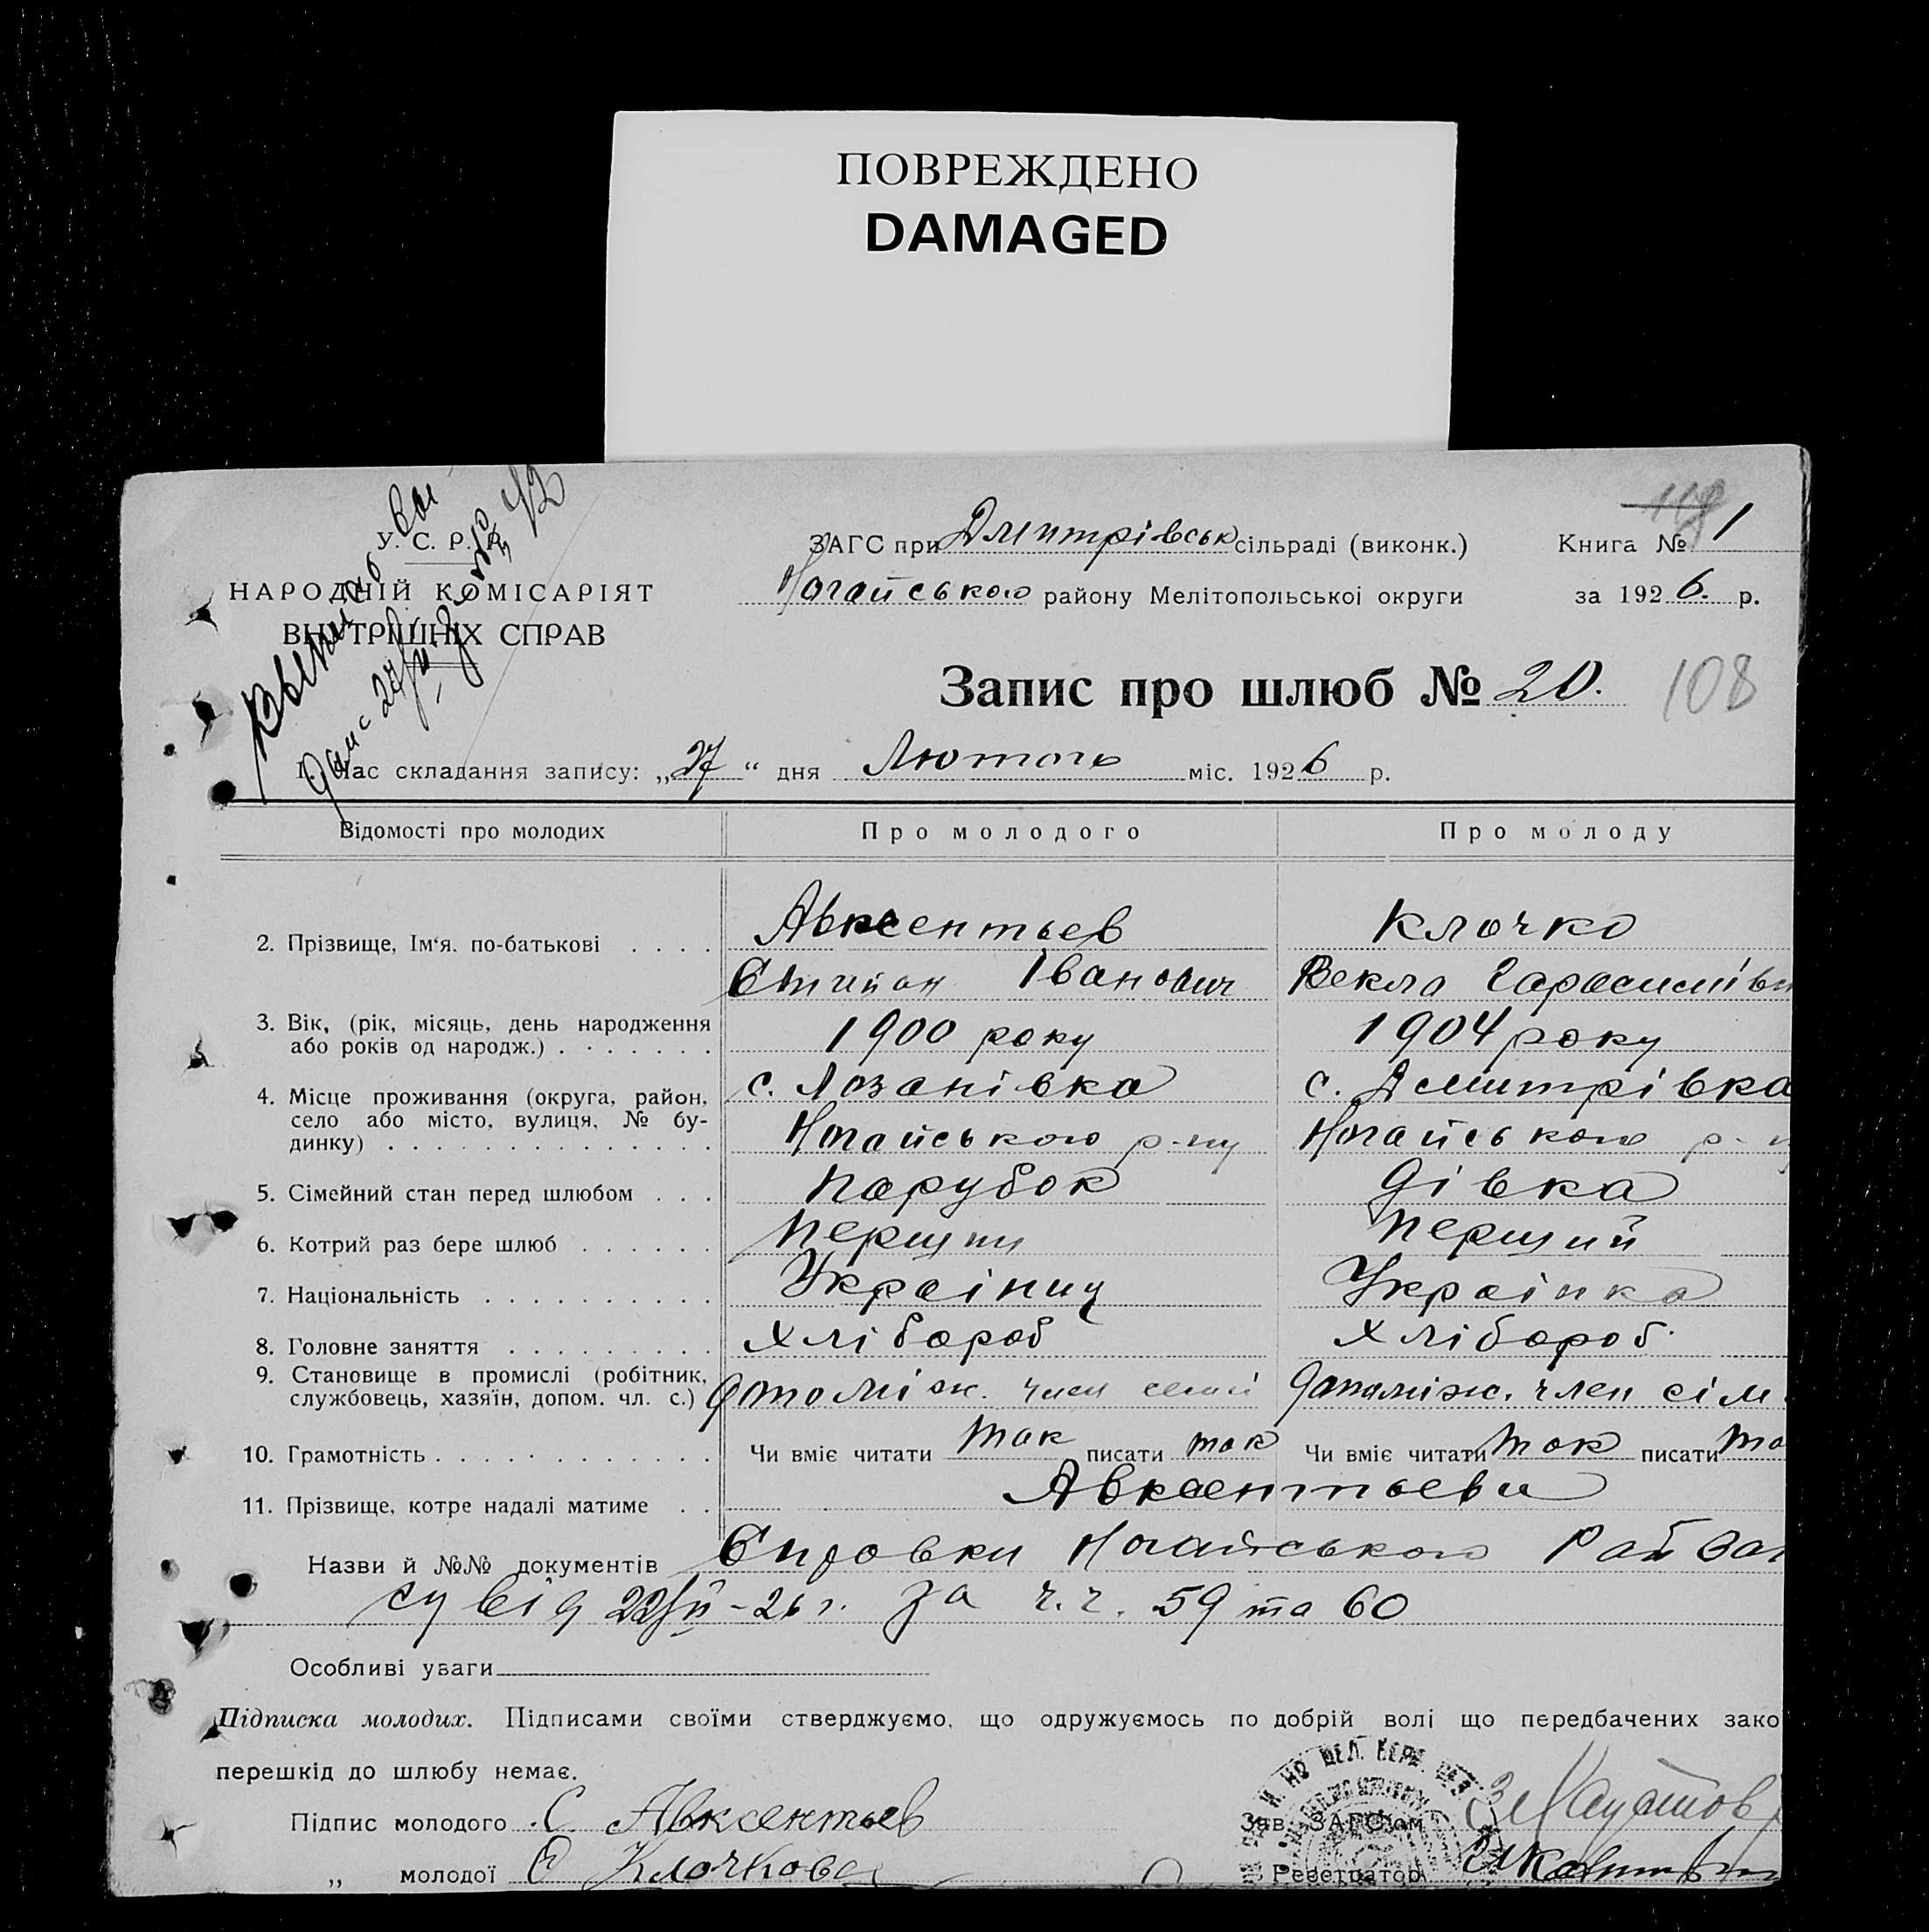 ПОВРЕЖДЕНО
DAMAGED
У. С. Р. Р.
НАРОДНІЙ КОМІСАРІЯТ
ВНУТРІШНІХ СПРАВ
ЗАГС при Дмитрівськ сільраді (виконк.) Книга № 1
Ногайського району Мелітопольської округи за 1926. р.
Запис про шлюб № 20. 108
1. Час складання запису: „27“ дня Лютого міс. 1926 р.
Відомості про молодих Про молодого Про молоду
Авксентьев Клочко
2. Прізвище, Ім'я. по-батькові
Степан Іванович Векла Гарасимівн
3. Вік, (рік, місяць, день народження
або років од народж.) 1900 року 1904 року
4. Місце проживання (округа, район, с. Лозанівка с. Дмитрівка
село або місто, вулиця, № бу-
динку) Ногайського р-ну Ногайського р-н
5. Сімейний стан перед шлюбом парубок дівка
6. Котрий раз бере шлюб перший перший
7. Національність Українец Українка
8. Головне заняття хлібороб хлібороб
9. Становище в промислі (робітник,
службовець, хазяїн, допом. чл. с.) допоміж. член семьї допоміж. член сім
10. Грамотність Чи вміє читати так писати так Чи вміє читати так писати та
11. Прізвище, котре надалі матиме Авксентьеви
Назви й №№ документів Справки Ногайського
су від 22/II-26 г. за ч.ч. 59 та 60
Особливі уваги
Підписка молодих. Підписами своїми стверджуємо, що одружуємось по добрій волі що передбачених зако
перешкід до шлюбу немає.
Підпис молодого С Авксентьев Зав. ЗАГС'ом
„ молодої Клочкова Реєстратор